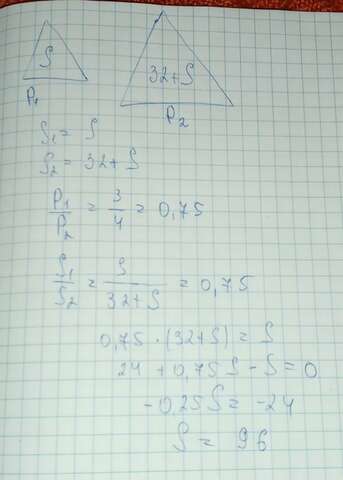 S
32+S
P₁
P₂
S₁ = S
S₂ = 32 + S
P₁/P₂ = 3/4 = 0,75
S₁/S₂ = S/(32+S) = 0,75
0,75 · (32+S) = S
24 + 0,75 S - S = 0
-0,25 S = -24
S = 96